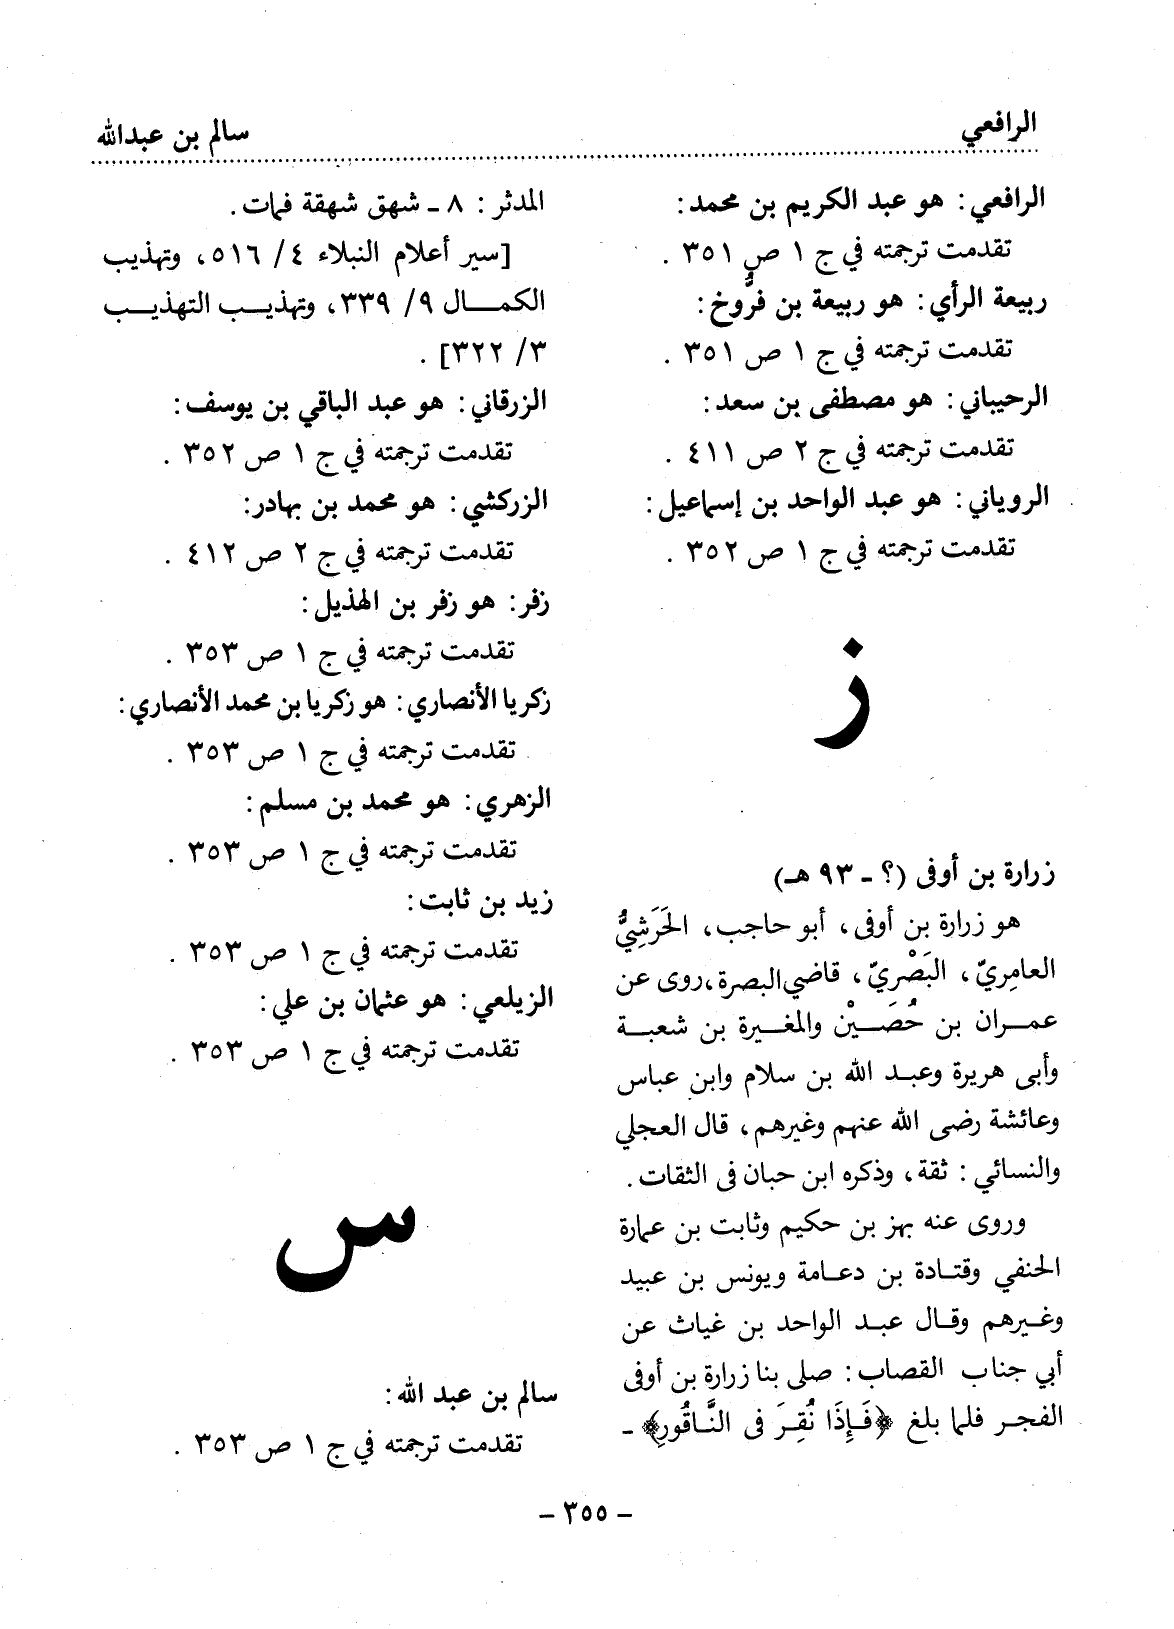 الرافعي
سالم بن عبدالله
الرافعي: هو عبد الكريم بن محمد:
تقدمت ترجمته في ج ١ ص ٣٥١ .
ربيعة الرأي: هو ربيعة بن فرُّوخ:
تقدمت ترجمته في ج ١ ص ٣٥١ .
الرحيباني: هو مصطفى بن سعد:
تقدمت ترجمته في ج ٢ ص ٤١١ .
الروياني: هو عبد الواحد بن إسماعيل:
تقدمت ترجمته في ج ١ ص ٣٥٢ .
ز
زرارة بن أوفى (؟ ـ ٩٣ هـ)
هو زرارة بن أوفى، أبو حاجب، الحَرَشِيُّ
العامِريّ، البَصْريّ، قاضي البصرة، روى عن
عمران بن حُصَيْن والمغيرة بن شعبة
وأبى هريرة وعبد الله بن سلام وابن عباس
وعائشة رضى الله عنهم وغيرهم، قال العجلي
والنسائي: ثقة، وذكره ابن حبان فى الثقات.
وروى عنه بهز بن حكيم وثابت بن عمارة
الحنفي وقتادة بن دعامة ويونس بن عبيد
وغيرهم وقال عبد الواحد بن غياث عن
أبي جناب القصاب: صلى بنا زرارة بن أوفى
الفجر فلما بلغ ﴿فَإِذَا نُقِرَ فى النَّاقُورِ﴾ ـ
المدثر: ٨ ـ شهق شهقة فمات.
[سير أعلام النبلاء ٤/ ٥١٦، وتهذيب
الكمال ٩/ ٣٣٩، وتهذيب التهذيب
٣/ ٣٢٢] .
الزرقاني: هو عبد الباقي بن يوسف:
تقدمت ترجمته في ج ١ ص ٣٥٢ .
الزركشي: هو محمد بن بهادر:
تقدمت ترجمته في ج ٢ ص ٤١٢ .
زفر: هو زفر بن الهذيل:
تقدمت ترجمته في ج ١ ص ٣٥٣ .
زكريا الأنصاري: هو زكريا بن محمد الأنصاري:
تقدمت ترجمته في ج ١ ص ٣٥٣ .
الزهري: هو محمد بن مسلم:
تقدمت ترجمته في ج ١ ص ٣٥٣ .
زيد بن ثابت:
تقدمت ترجمته في ج ١ ص ٣٥٣ .
الزيلعي: هو عثمان بن علي:
تقدمت ترجمته في ج ١ ص ٣٥٣ .
س
سالم بن عبد الله:
تقدمت ترجمته في ج ١ ص ٣٥٣ .
- ٣٥٥ -